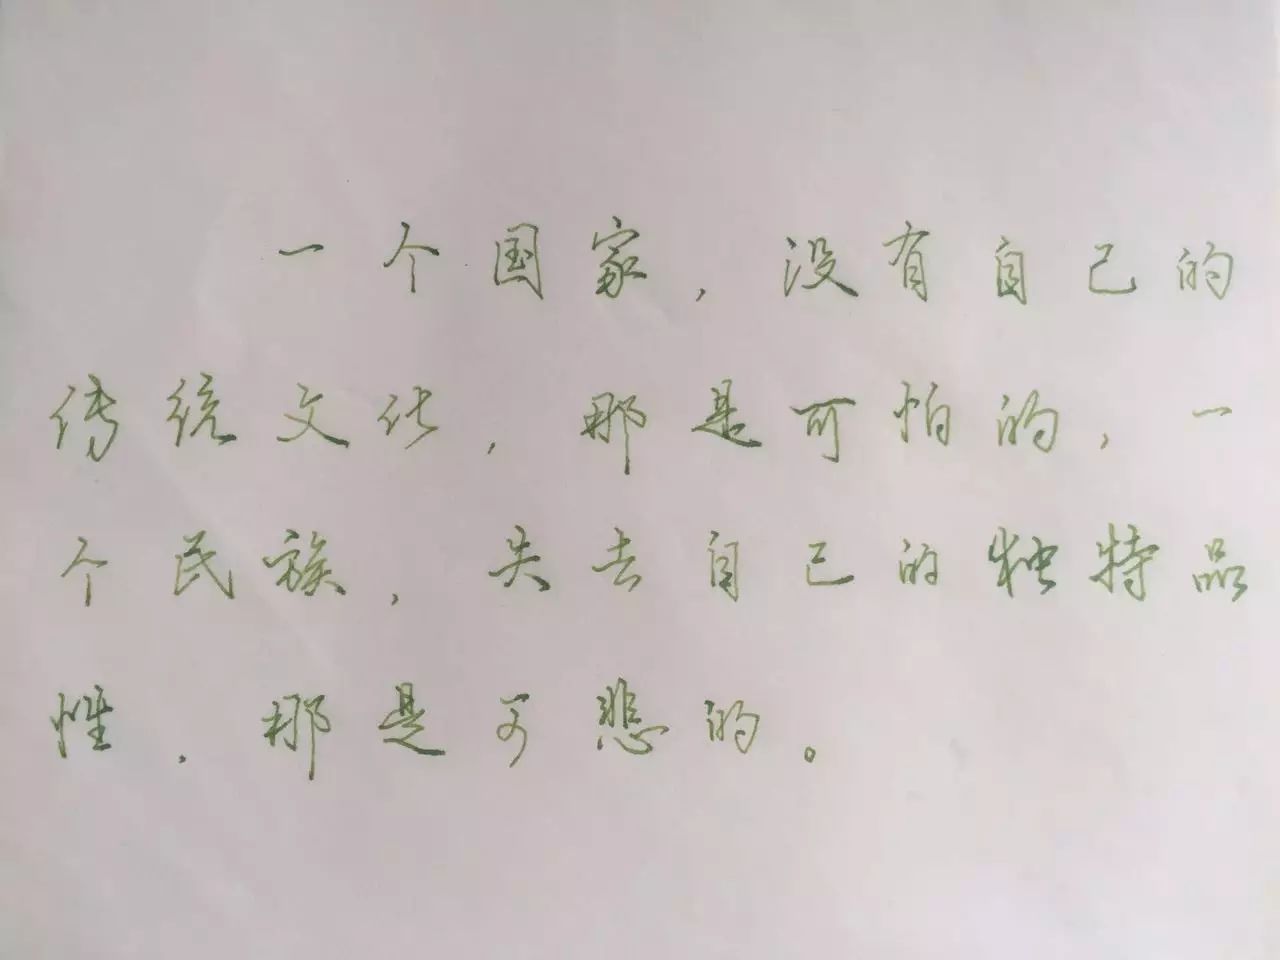 一个国家，没有自己的
传统文化，那是可怕的，一
个民族，失去自己的独特品
性，那是可悲的。